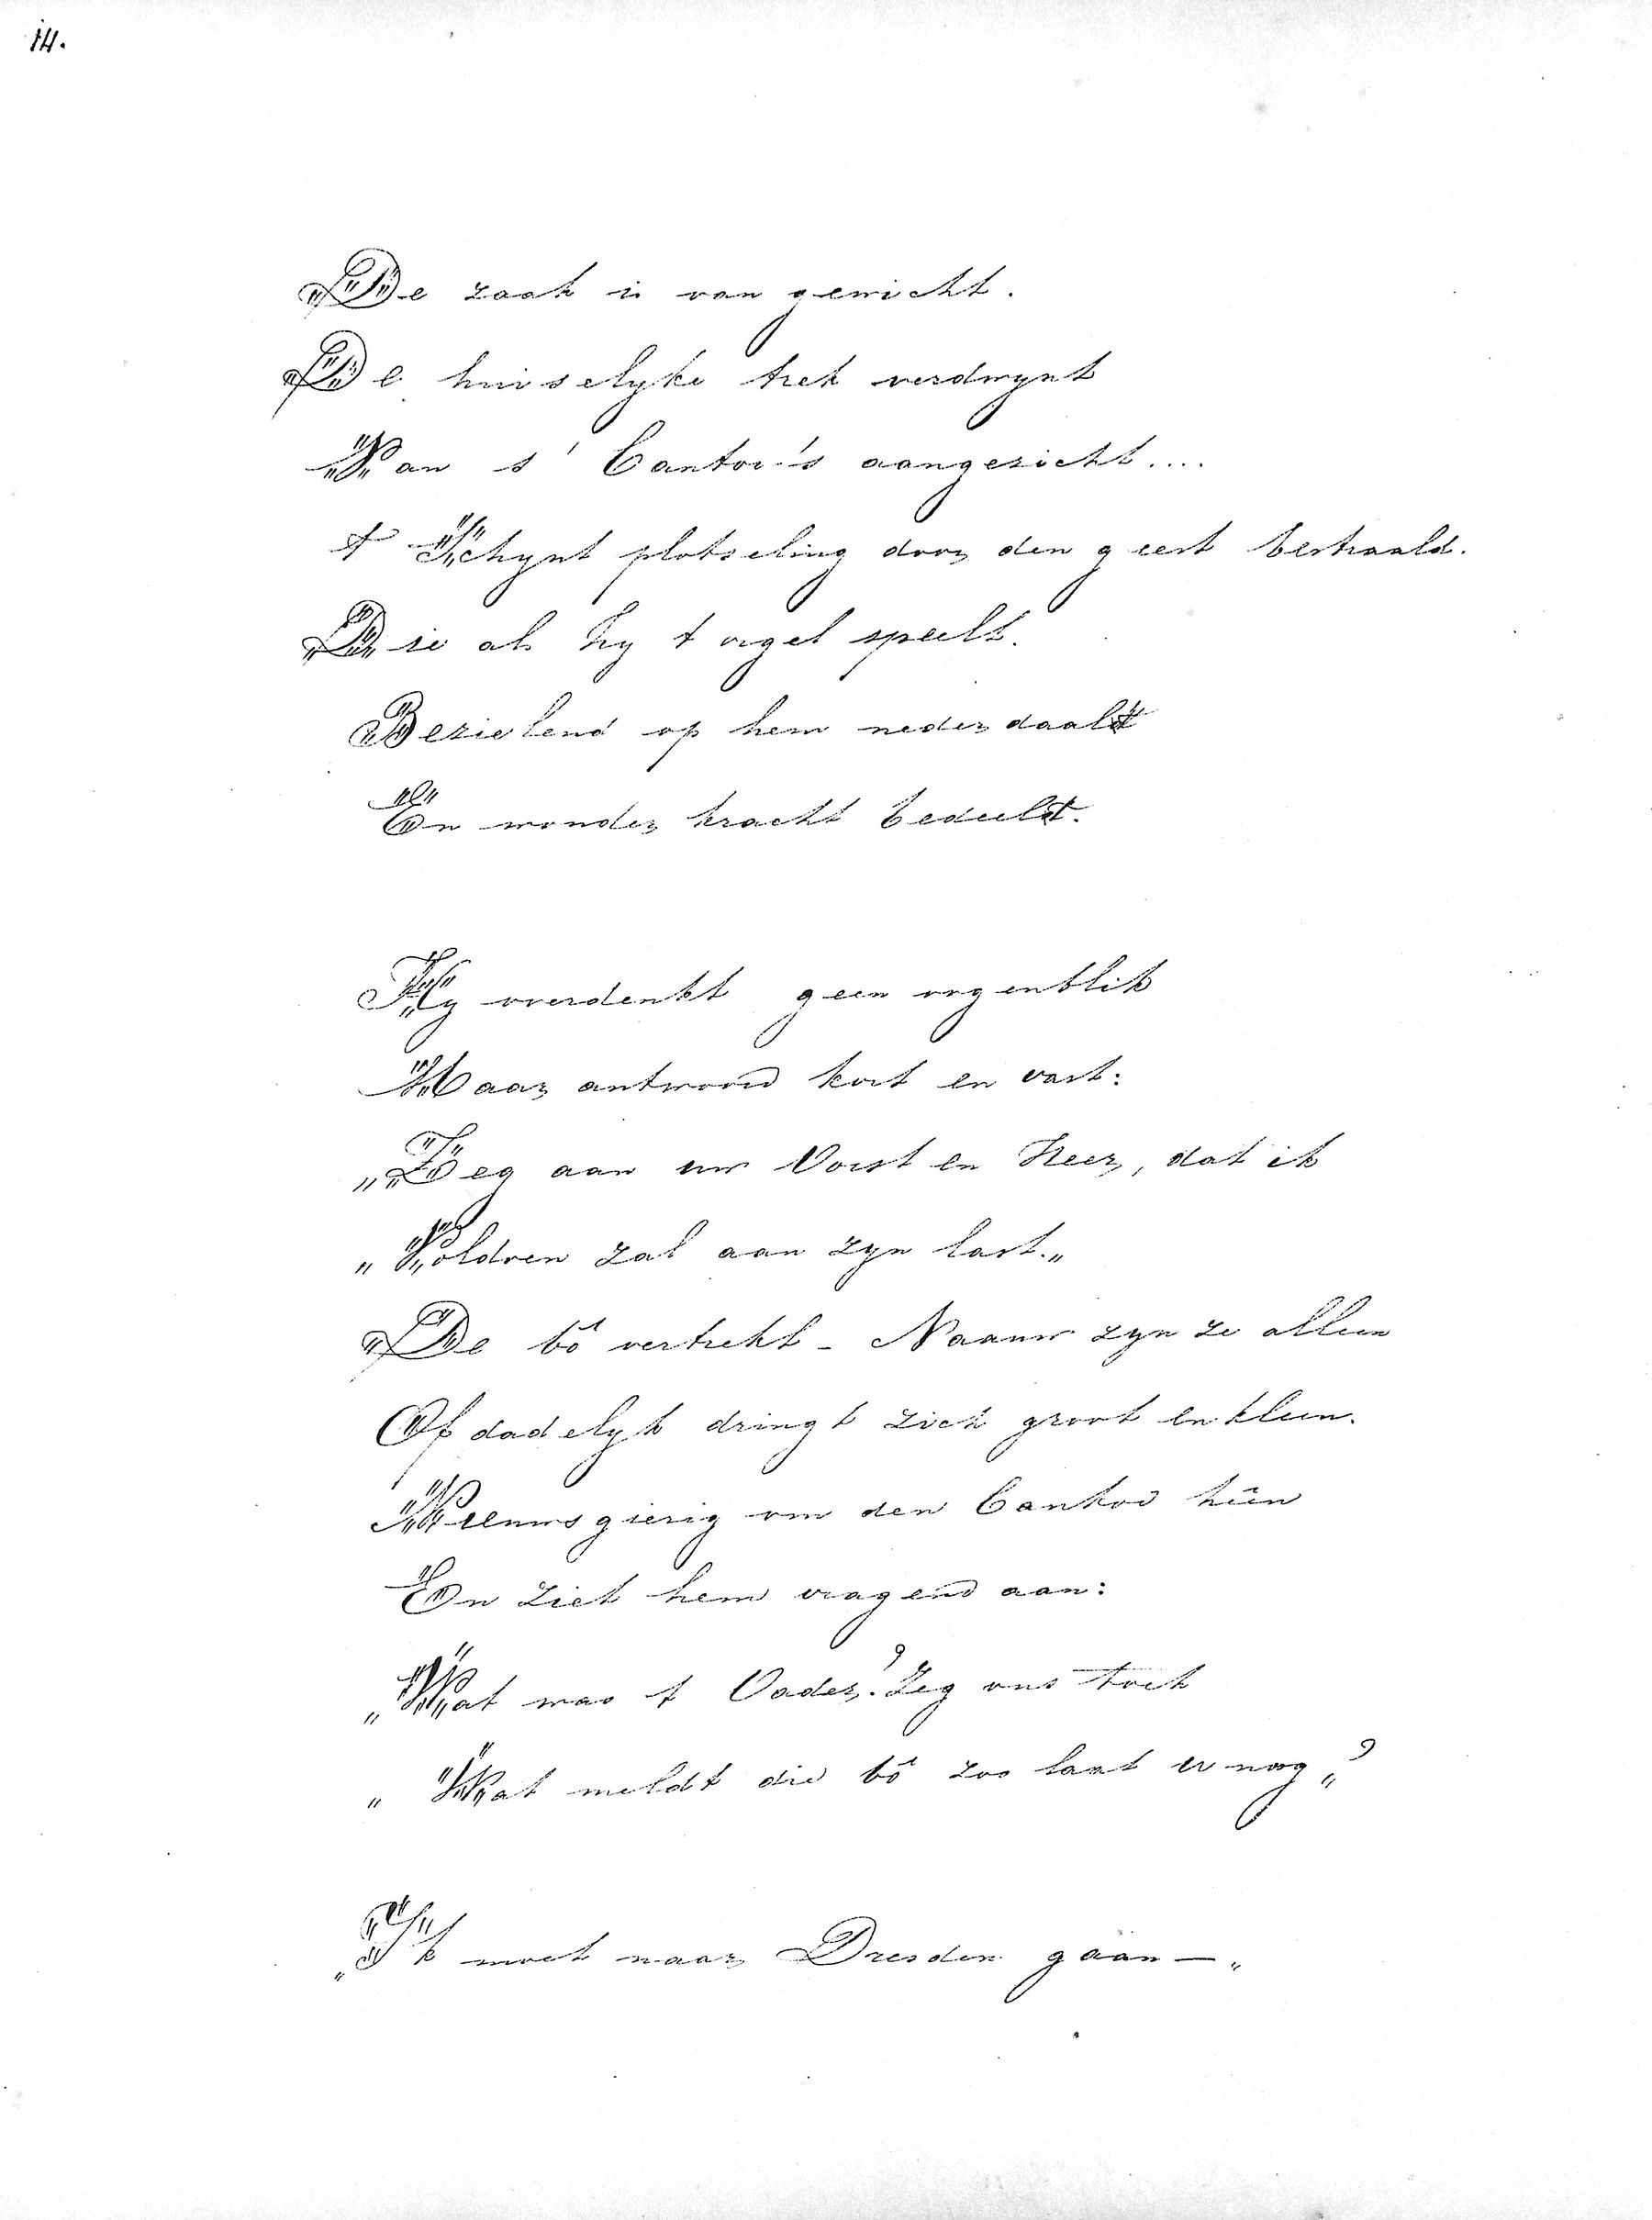 14.
De zaak is van gewicht.
De huiselyke trek verdwynt
Van s' Cantor's aangezicht....
t Schynt plotseling door den geest bestraald.
Die als hy t orgel speelt.
Bezielend op hem nederdaalt
En wonderkracht bedeelt.
Hy overdenkt geen oogenblik
Maar antwoord kort en vast:
„Zeg aan uw Vorst en Heer, dat ik
„Voldoen zal aan zyn last.„
De bô vertrekt - Naauw zyn ze alleen
Of dadelyk dringt zich groot en kleen.
Nieuwsgierig om den Cantor hêen
En ziet hem vragend aan:
„Wat was t Vader? Zeg ons toch
„Wat meldt die bô zoo laat er nog„?
„Ik moet naar Dresden gaan—„